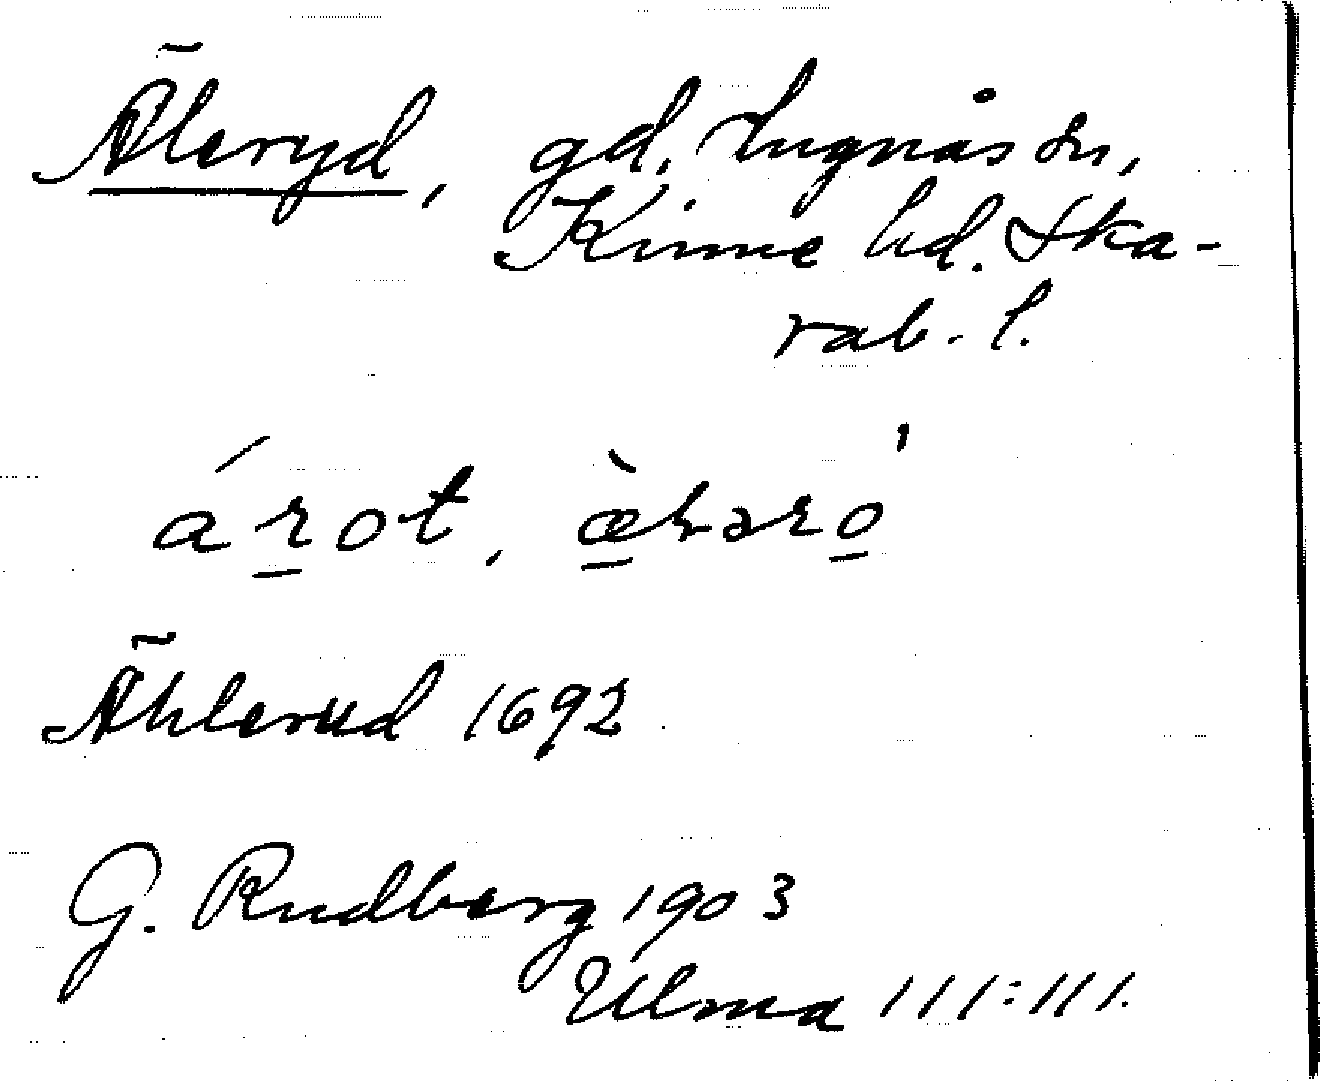 Äleryd, gd, Lugnås sn,
Kinne hd. Ska-
rab. l.
árot,
Ählerud 1692
G. Rudberg 1903
Ulma 111:111.